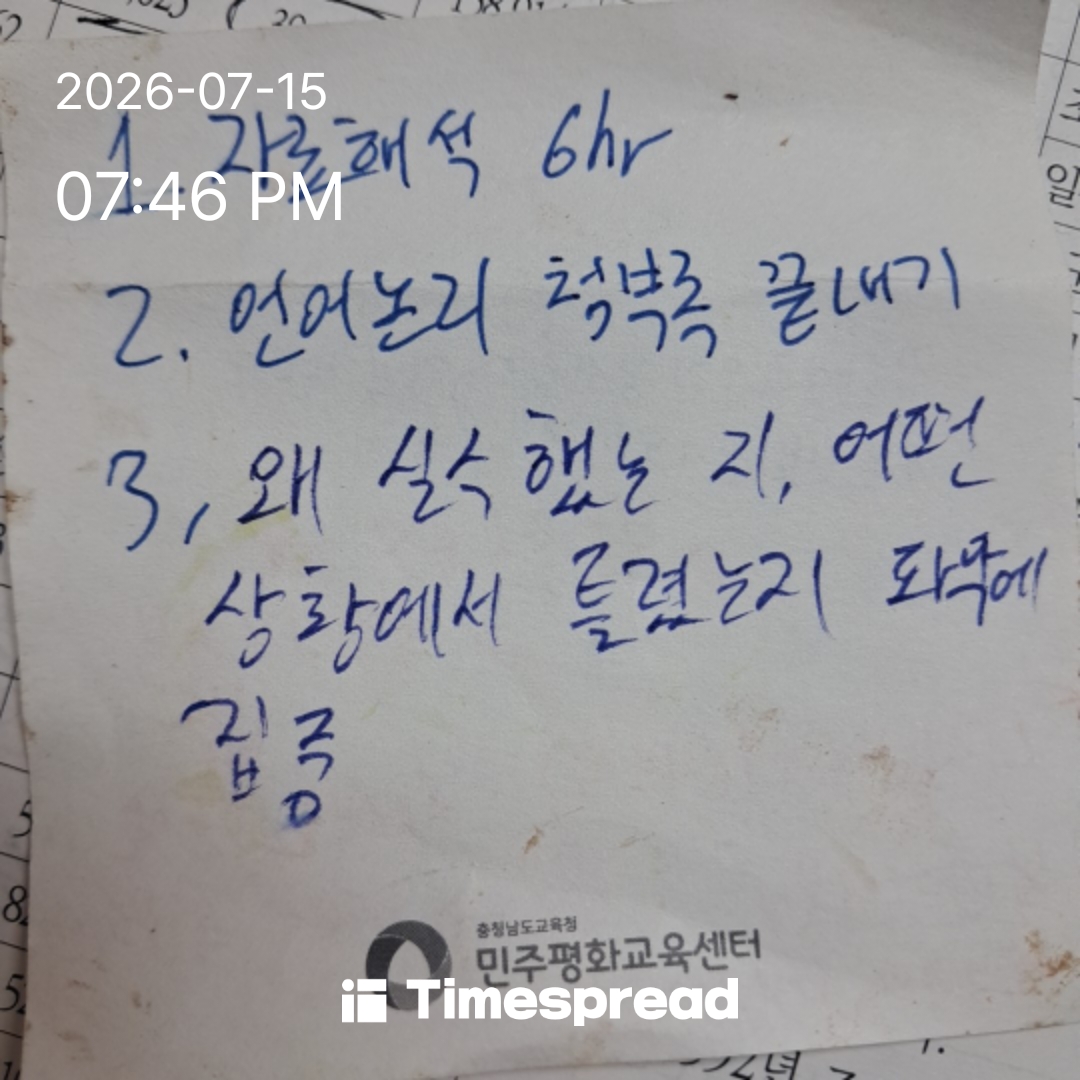 2026-07-15
07:46 PM
1. 자료해석 6hr
2. 언어논리 청부록 끝내기
3, 왜 실수했는 지, 어떤
상황에서 틀렸는지 파악에
집중
충청남도교육청
민주평화교육센터
Timespread
일